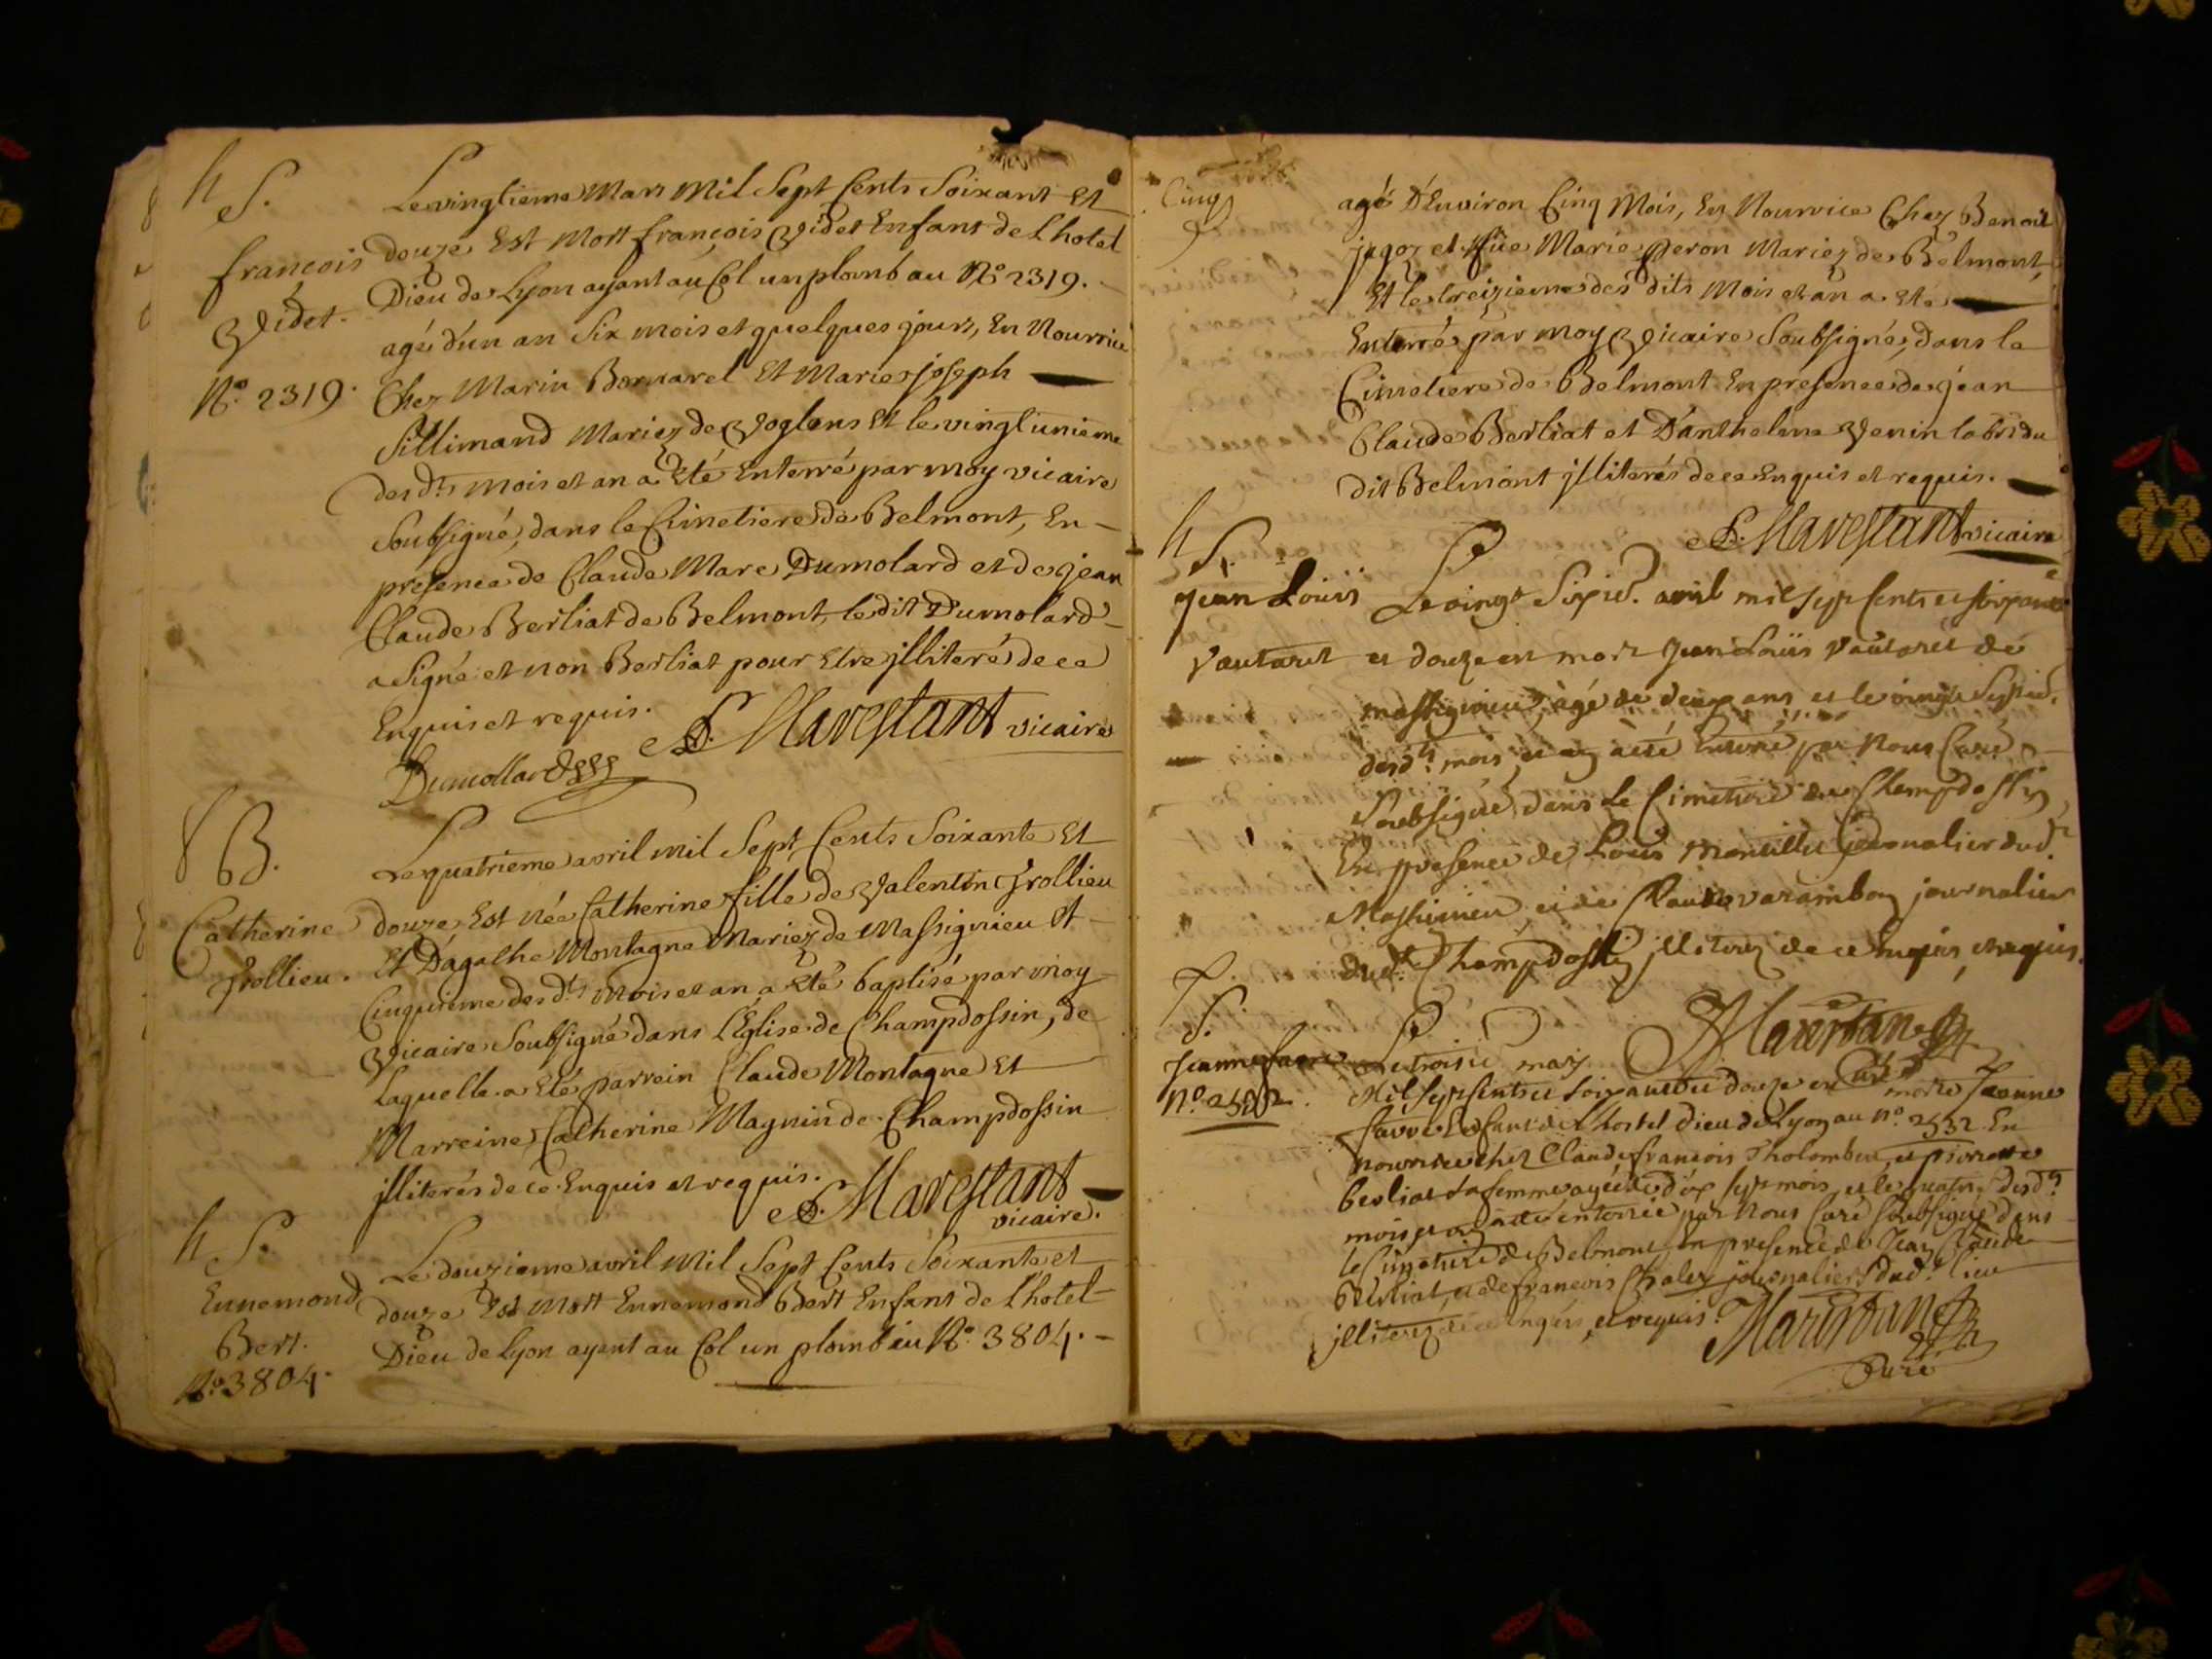 h S.
Le vingtieme Mars Mil Sept Cents Soixant Et
françois
Videt.
N.º 2319.
douze Est Mort françois Videt Enfant de L'hotel
Dieu de Lyon ayant au Col un plomb au N.º 2319.
agé d'un an Six mois et quelques jours, En Nourrice
Chez Marin Bornarel Et Marie joseph
Sillimand Mariez de Voglens Et le vingt unieme
des d.ts mois et an a Eté Enterré par moy vicaire
Soubsigné, dans le Cimetiere de Belmont, En
présence de Claude Marc Dumolard et de jean
Claude Berliat de Belmont, le dit Dumolard
a Signé et non Berliat pour Etre jlliteré de ce
Enquis et requis.
Marestant vicaire
Dumollard
8 B.
Catherine
frollieu.
Le quatrieme avril mil Sept Cents Soixante Et
douze Est née Catherine fille de Valentin frollieu
Et D'agathe Montagne Mariez de Massignieu Et
Cinquieme des d.ts mois et an a Eté baptisé par moy
Vicaire Soubsigné dans l'Eglise de Champdossin, de
Laquelle a Eté parrein Claude Montagne Et
Marreine Catherine Magnin de Champdossin
jlliterés de ce Enquis et requis.
Marestant
vicaire.
h S.
Ennemond
Bert.
N.º 3804.
Le douzieme avril Mil Sept Cents Soixante et
douze Est Mort Ennemond Bert Enfant de L'hotel
Dieu de Lyon ayant au Col un plomb au N.º 3804.
Cinq
agé D'Environ Cinq Mois, En Nourrice Chez Benoit
jagoz et füe Marie peron Mariez de Belmont,
Et le treizieme des dits Mois et an a Eté
Enterré par moy Vicaire Soubsigné, dans le
Cimetiere de Belmont En présence de jean
Claude Berliat et D'anthelme Venin labr. du
dit Belmont jlliterés de ce Enquis et requis.
Marestant vicaire
h S.
jean Louis
Vautaret
Le vingt Sixie. avril mil sept Cents et soixante
et douze est mort jean Loüis Vautaret de
massignieu, agé de deux ans et le vingt Septie.
desd.ts mois et an a été Enterré par Nous Curé
Soubsigné dans Le Cimetiere de Champdossin
En presence de Loüis journalier dud.t
Massignieu et de Claude varambon journalier
dud.t Champdossin jlliterez de ce Enquis, et requis.
Marestan
Curé
S.
jeanne favre
N.º 2532.
Le troisie may
Mil sept cents et soixante et douze est morte Jeanne
favre Enfant de L'hostel Dieu de Lyon au N.º 2532. En
nourrice chez Claude françois Tholombex, et pierrette
berliat sa femme agée de dix sept mois, et le quatr. desd.ts
mois et an a été enterrée par Nous Curé soubsigné dans
le Cimetiere de Belmont, en presence de Jean Claude
Berliat, et de françois Chaley journaliers dud.t Lieu
jlliterez de ce Enquis, et requis.
Marestan
Curé